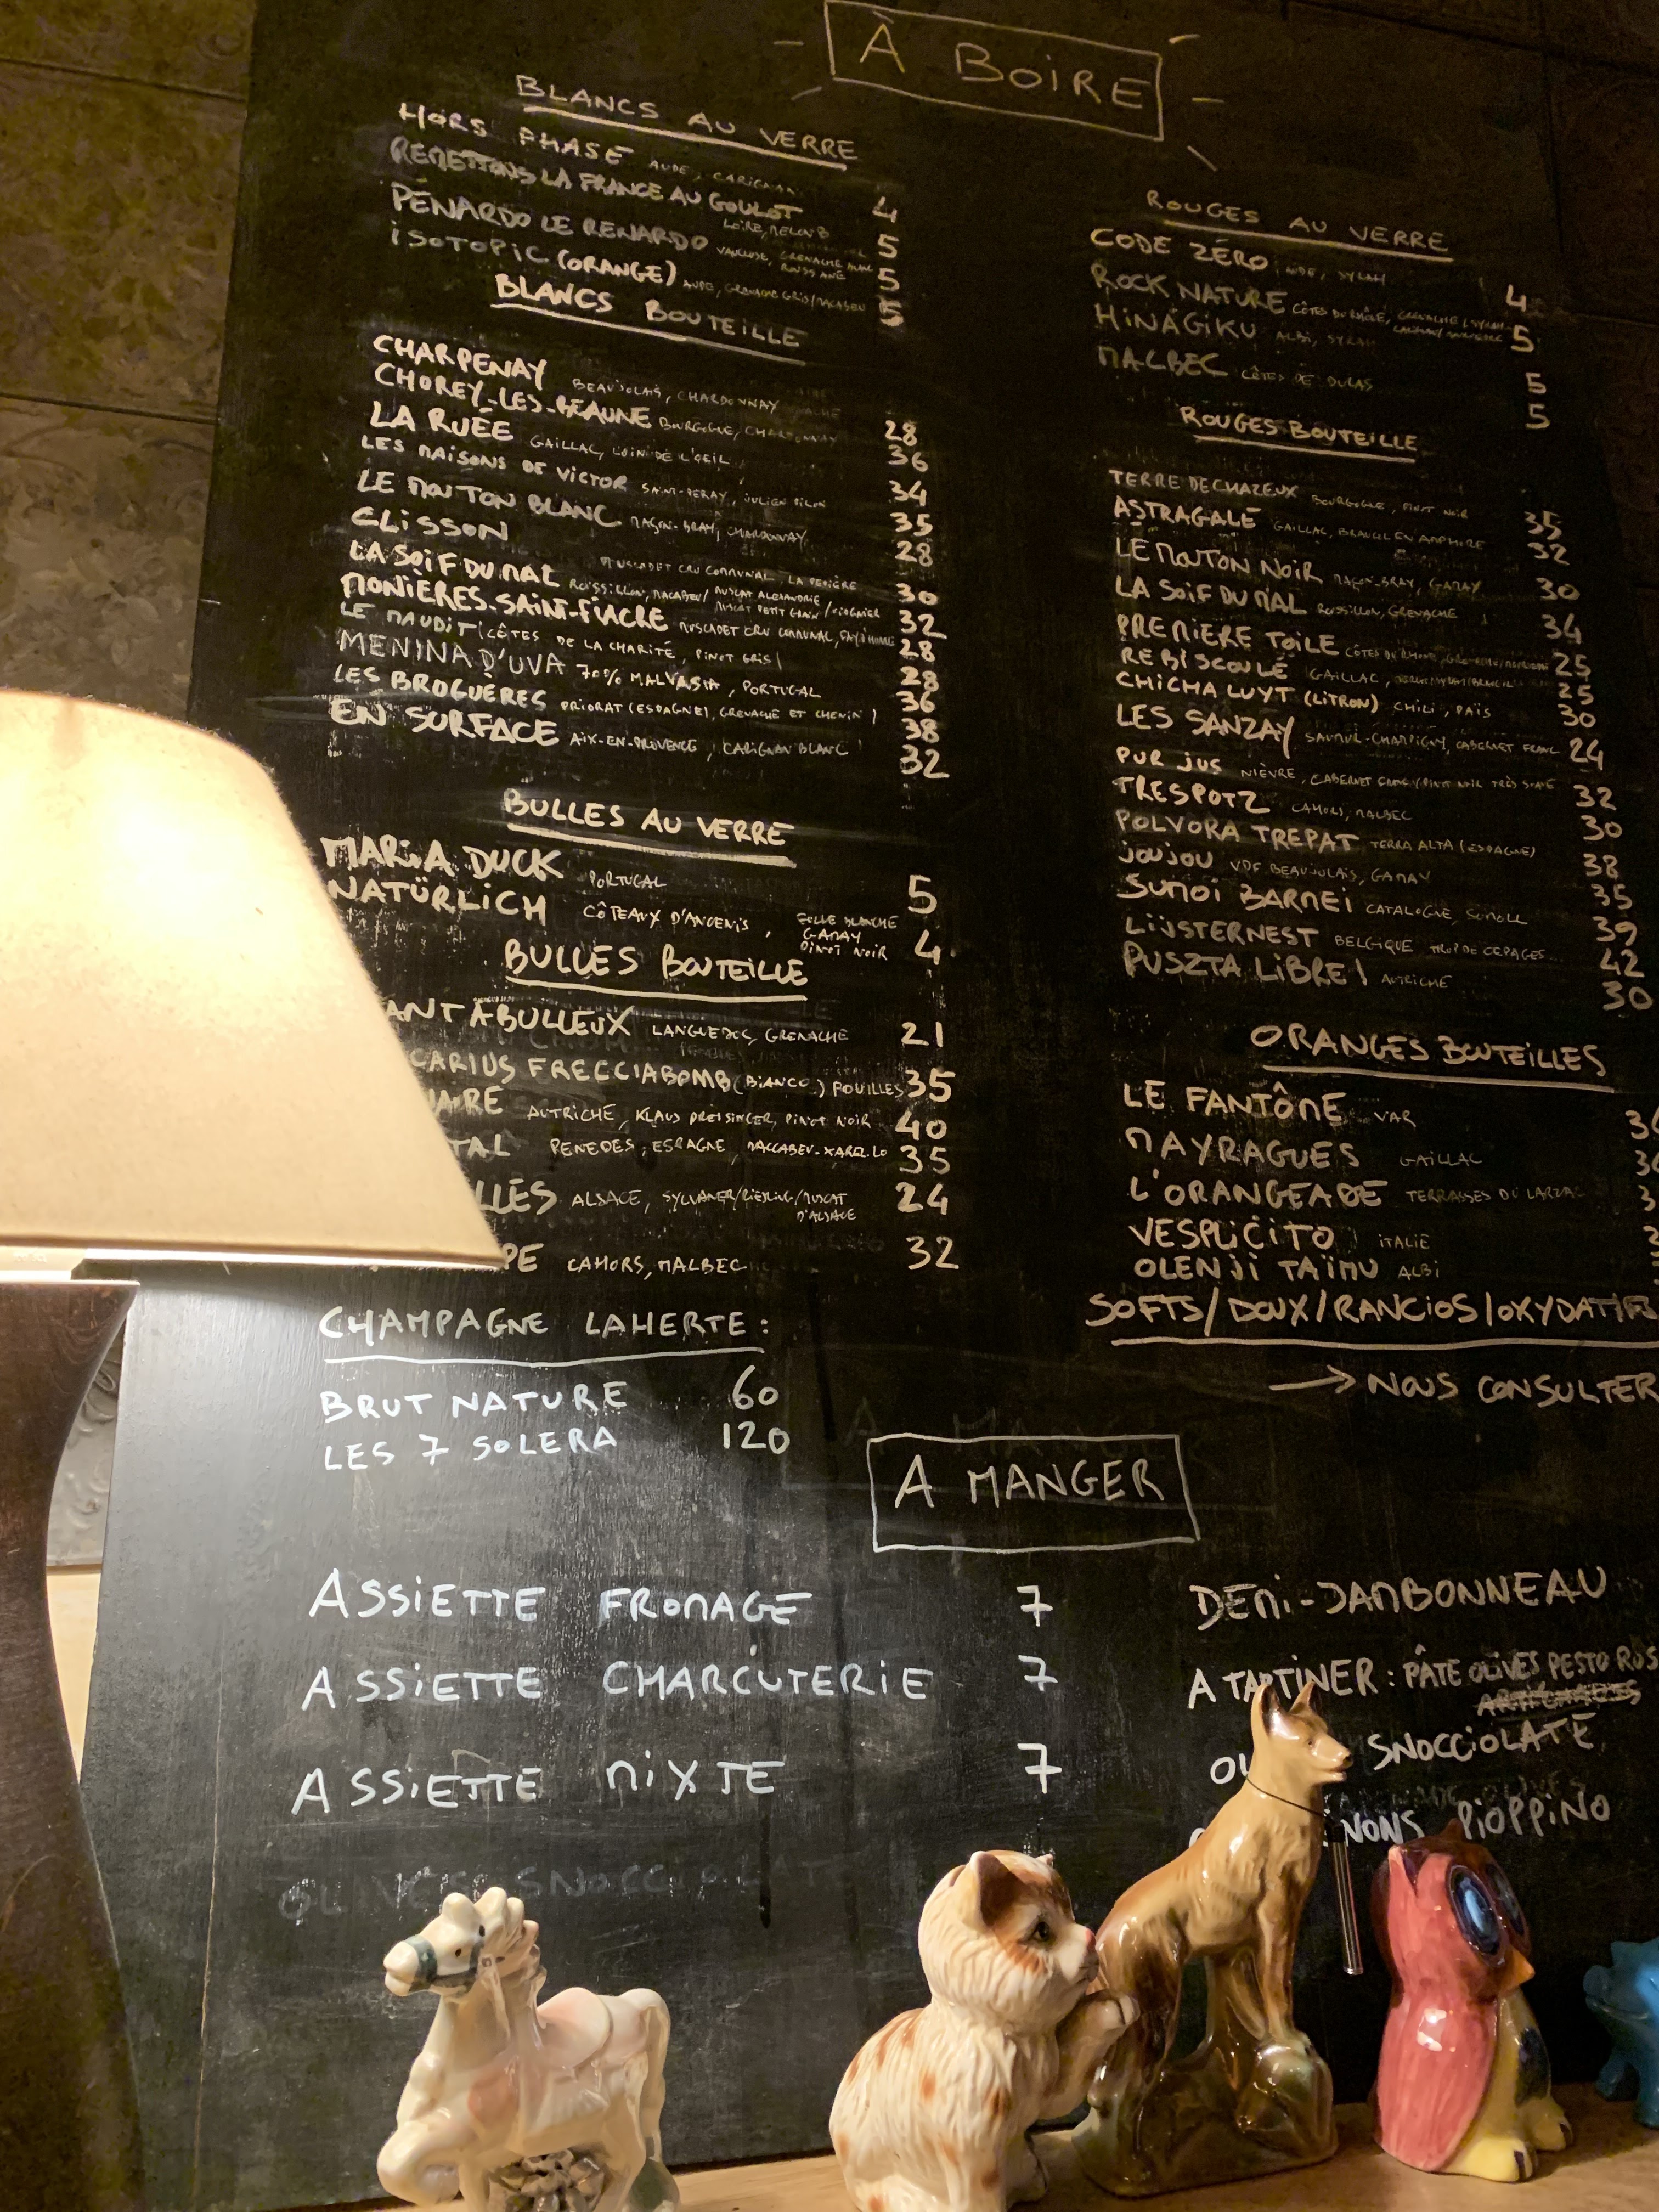 À BOIRE
BLANCS AU VERRE
HORS PHASE AUDE, CARIGNAN 4
REMETTONS LA FRANCE AU GOULOT LOIRE, MELON B 5
PÉNARDO LE RENARDO VAUCLUSE, GRENACHE BLANC 5
ROUSSANE
ISOTOPIC (ORANGE) AUDE, GRENACHE GRIS/MACABEU 5
BLANCS BOUTEILLE
CHARPENAY BEAUJOLAIS, CHARDONNAY 28
CHOREY-LES-BEAUNE BOURGOGNE, CHARDONNAY 36
LA RUÉE GAILLAC, LOIN DE L'OEIL 34
LES MAISONS DE VICTOR SAINT-PERAY, JULIEN PILON 35
LE MOUTON BLANC MAÇON-BRAY, CHARDONNAY 28
CLISSON MUSCADET CRU COMMUNAL, LA PEPIÈRE 30
LA SOIF DU MAL ROUSSILLON, MACABEU/ MUSCAT ALEXANDRIE 32
MUSCAT PETIT GRAIN/VIOGNIER
MONIÈRES-SAINT-FIACRE MUSCADET CRU COMMUNAL, 28
LE MAUDIT (CÔTES DE LA CHARITÉ, PINOT GRIS) 28
MENINA D'UVA 70% MALVASIA, PORTUGAL 36
LES BROGUÈRES PRIORAT (ESPAGNE), GRENACHE ET CHENIN 38
EN SURFACE AIX-EN-PROVENCE, CARIGNAN BLANC 32
BULLES AU VERRE
MARIA DUCK PORTUGAL 5
NATÜRLICH CÔTEAUX D'ANCENIS, FOLLE BLANCHE 4
GAMAY
PINOT NOIR
BULLES BOUTEILLE
ANTABULLEUX LANGUEDOC, GRENACHE 21
CARIUS FRECCIABOMB (BIANCO) POUILLES 35
AUTRICHE, KLAUS PREISINGER, PINOT NOIR 40
TAL PENEDÈS, ESPAGNE, MACCABEU-XAREL.LO 35
LLES ALSACE, SYLVANER/RIESLING/MUSCAT 24
D'ALSACE
PE CAHORS, MALBEC 32
CHAMPAGNE LAHERTE:
BRUT NATURE 60
LES 7 SOLERA 120
ROUGES AU VERRE
CODE ZÉRO AUDE, SYRAH 4
ROCK NATURE CÔTES DU RHÔNE, GRENACHE/SYRAH 5
HINAGIKU ALBI, SYRAH 5
MALBEC CÔTES DE DURAS 5
ROUGES BOUTEILLE
TERRE DE CHAZEUX BOURGOGNE, PINOT NOIR 35
ASTRAGALE GAILLAC, BRAUCOL EN AMPHORE 32
LE MOUTON NOIR MAÇON-BRAY, GAMAY 30
LA SOIF DU MAL ROUSSILLON, GRENACHE 34
PREMIÈRE TOILE CÔTES DU RHÔNE, 25
REBISCOULÉ GAILLAC, 25
CHICHA LUYT (LITRON) CHILI, PAÏS 30
LES SANZAY SAUMUR-CHAMPIGNY, CABERNET FRANC 24
PUR JUS NIÈVRE, CABERNET FRANC/PINOT NOIR TRÈS 32
TRESPOTZ CAHORS, MALBEC 30
POLVORA TREPAT TERRA ALTA (ESPAGNE) 38
JOUJOU VDF BEAUJOLAIS, GAMAY 35
SUMOI BARNEI CATALOGNE, SUMOLL 39
LIJSTERNEST BELGIQUE TROP DE CEPAGES... 42
PUSZTA LIBRE! AUTRICHE 30
ORANGES BOUTEILLES
LE FANTÔME VAR
MAYRAGUES GAILLAC
L'ORANGEADE TERRASSES DU LARZAC
VESPLIČITO ITALIE
OLENJI TAIMU ALBI
SOFTS/DOUX/RANCIOS/OXYDATIFS
→ NOUS CONSULTER
A MANGER
ASSIETTE FROMAGE 7
ASSIETTE CHARCUTERIE 7
ASSIETTE MIXTE 7
OLIVES SNOCCIOLATE
DEMI-JAMBONNEAU
A TARTINER: PÂTE OLIVES PESTO ROS
SNOCCIOLATE
NONS PIOPPINO